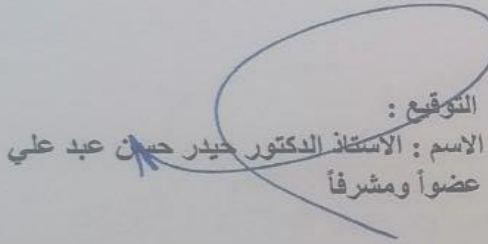 التوقيع :
الاسم : الاستاذ الدكتور حيدر حسن عبد علي
عضواً ومشرفاً